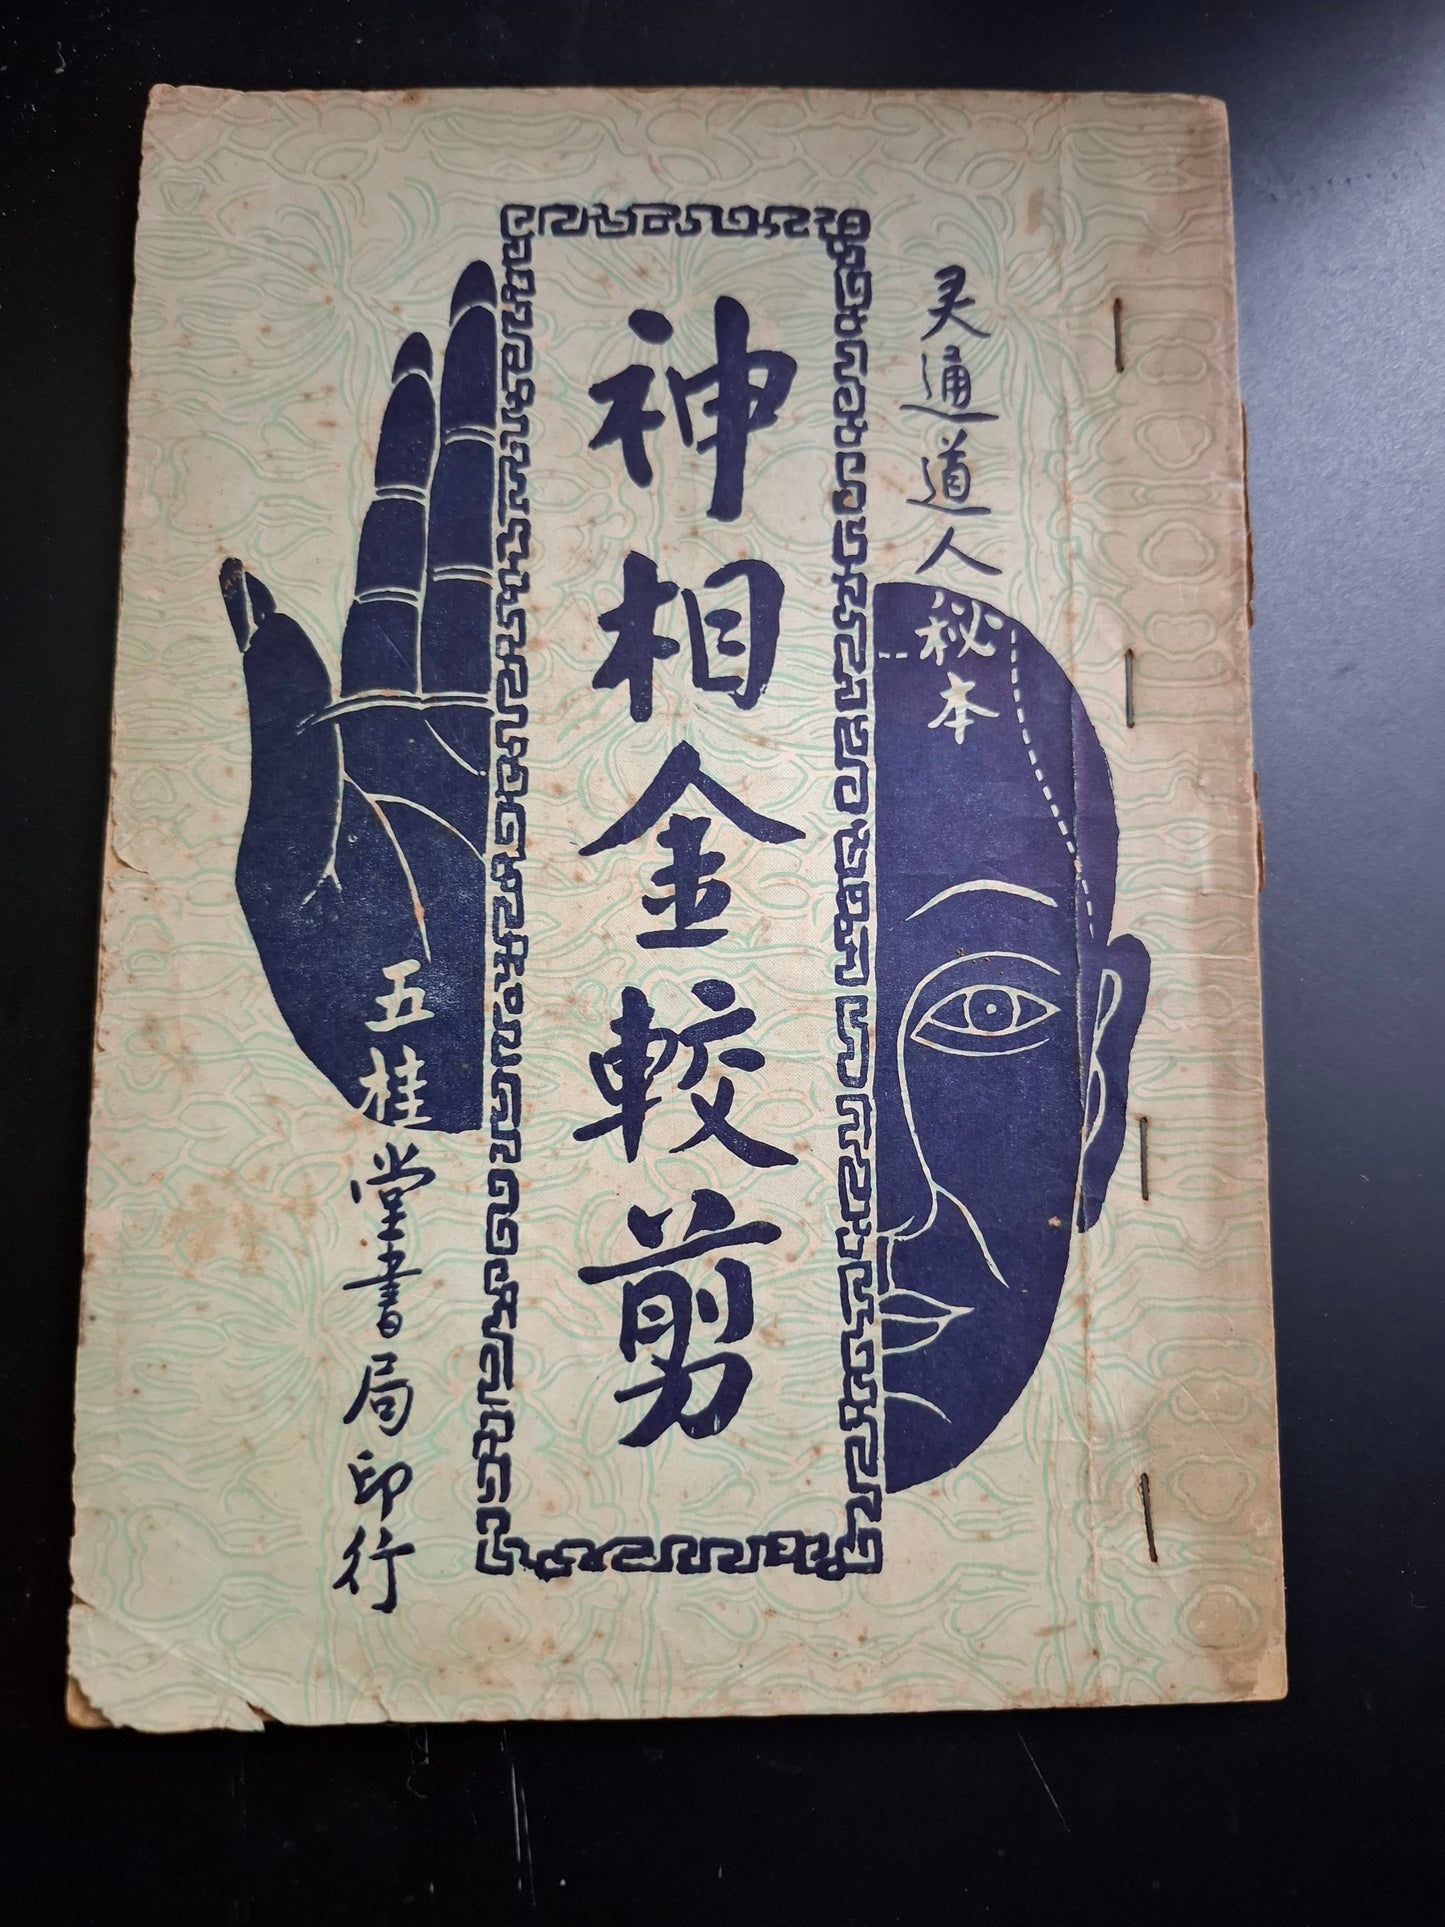 灵通道人秘本
神相金較剪
五桂堂書局印行